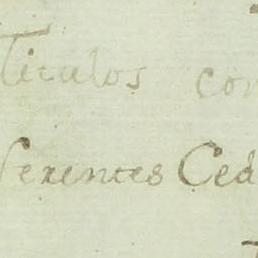 Titulos con
ferentes Ced